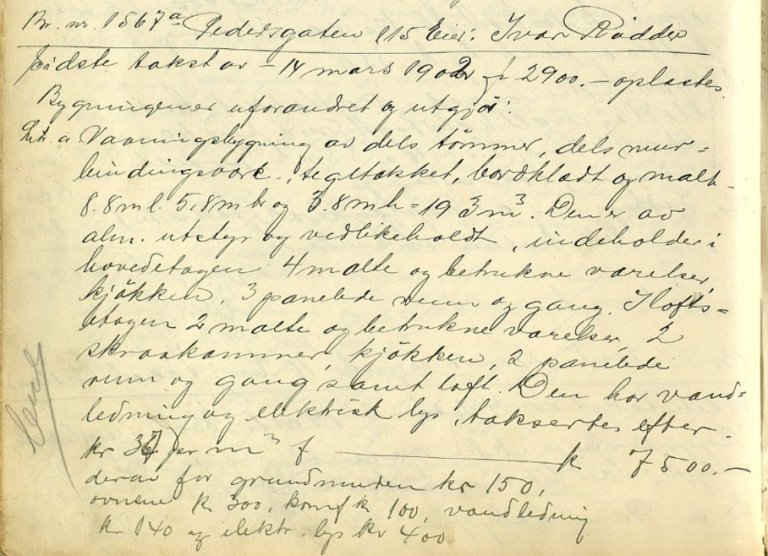 Br. nr. 1567a Pedersgaten 115 Eier: Ivar Rødder
Sidste takst av - 14 mars 1902 f 2900.- oplæstes.
Bygningene uforandret og utgjør:
Litr. a Vaaningsbygning av dels tømmer, dels mur-
bindingsverk, tegltækket, bordklædt og malt
8.8 m l. 5.8 m br og 3.8 m h = 193 m³. Den er av
alm. utstyr og vedlikeholdt, indeholder i
hovedetagen 4 malte og betrukne værelser
kjøkken, 3 panelede rum og gang. I lofts-
etagen 2 malte og betrukne værelser, 2
skraakammer, kjøkken, 2 panelede
rum og gang samt loft. Den har vand-
ledning og elektrisk lys, taksertes efter
kr 37 pr m³ f k 7500.-
derav for grundmuren kr 150,
ovnene kr 300, komf k 100, vandledning
kr 140 og elektr. lys kr 400